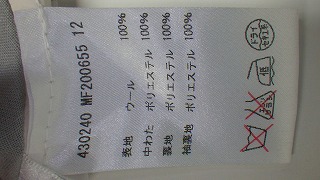 430240 MF200655 12
表地 ウール 100%
中わた ポリエステル 100%
裏地 ポリエステル 100%
袖裏地 ポリエステル 100%
ドライ
セキユ系
低